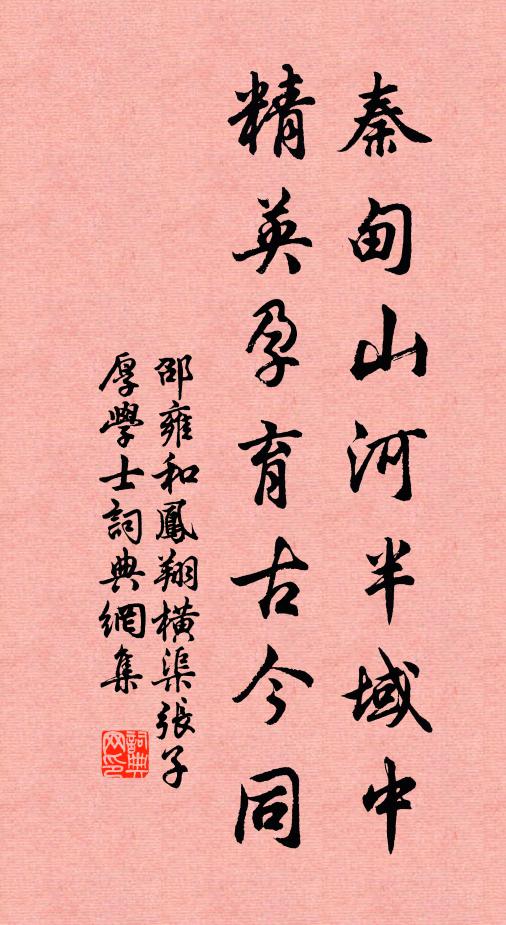 秦甸山河半域中
精英孕育古今同
邵雍和鳳翔橫渠張子
厚學士詞典網集
詞典網印